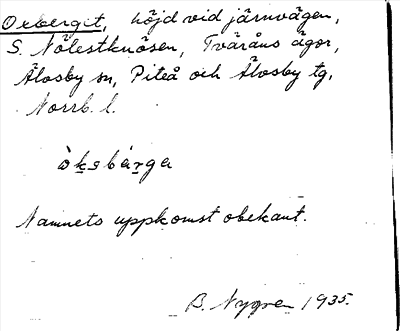 Oxberget, höjd vid järnvägen,
S. Nölestknösen, Tväråns ägor,
Älvsby sn, Piteå och Älvsby tg,
Norrb. l.
ò̀ksbárga
Namnets uppkomst obekant.
B. Nygren 1935.